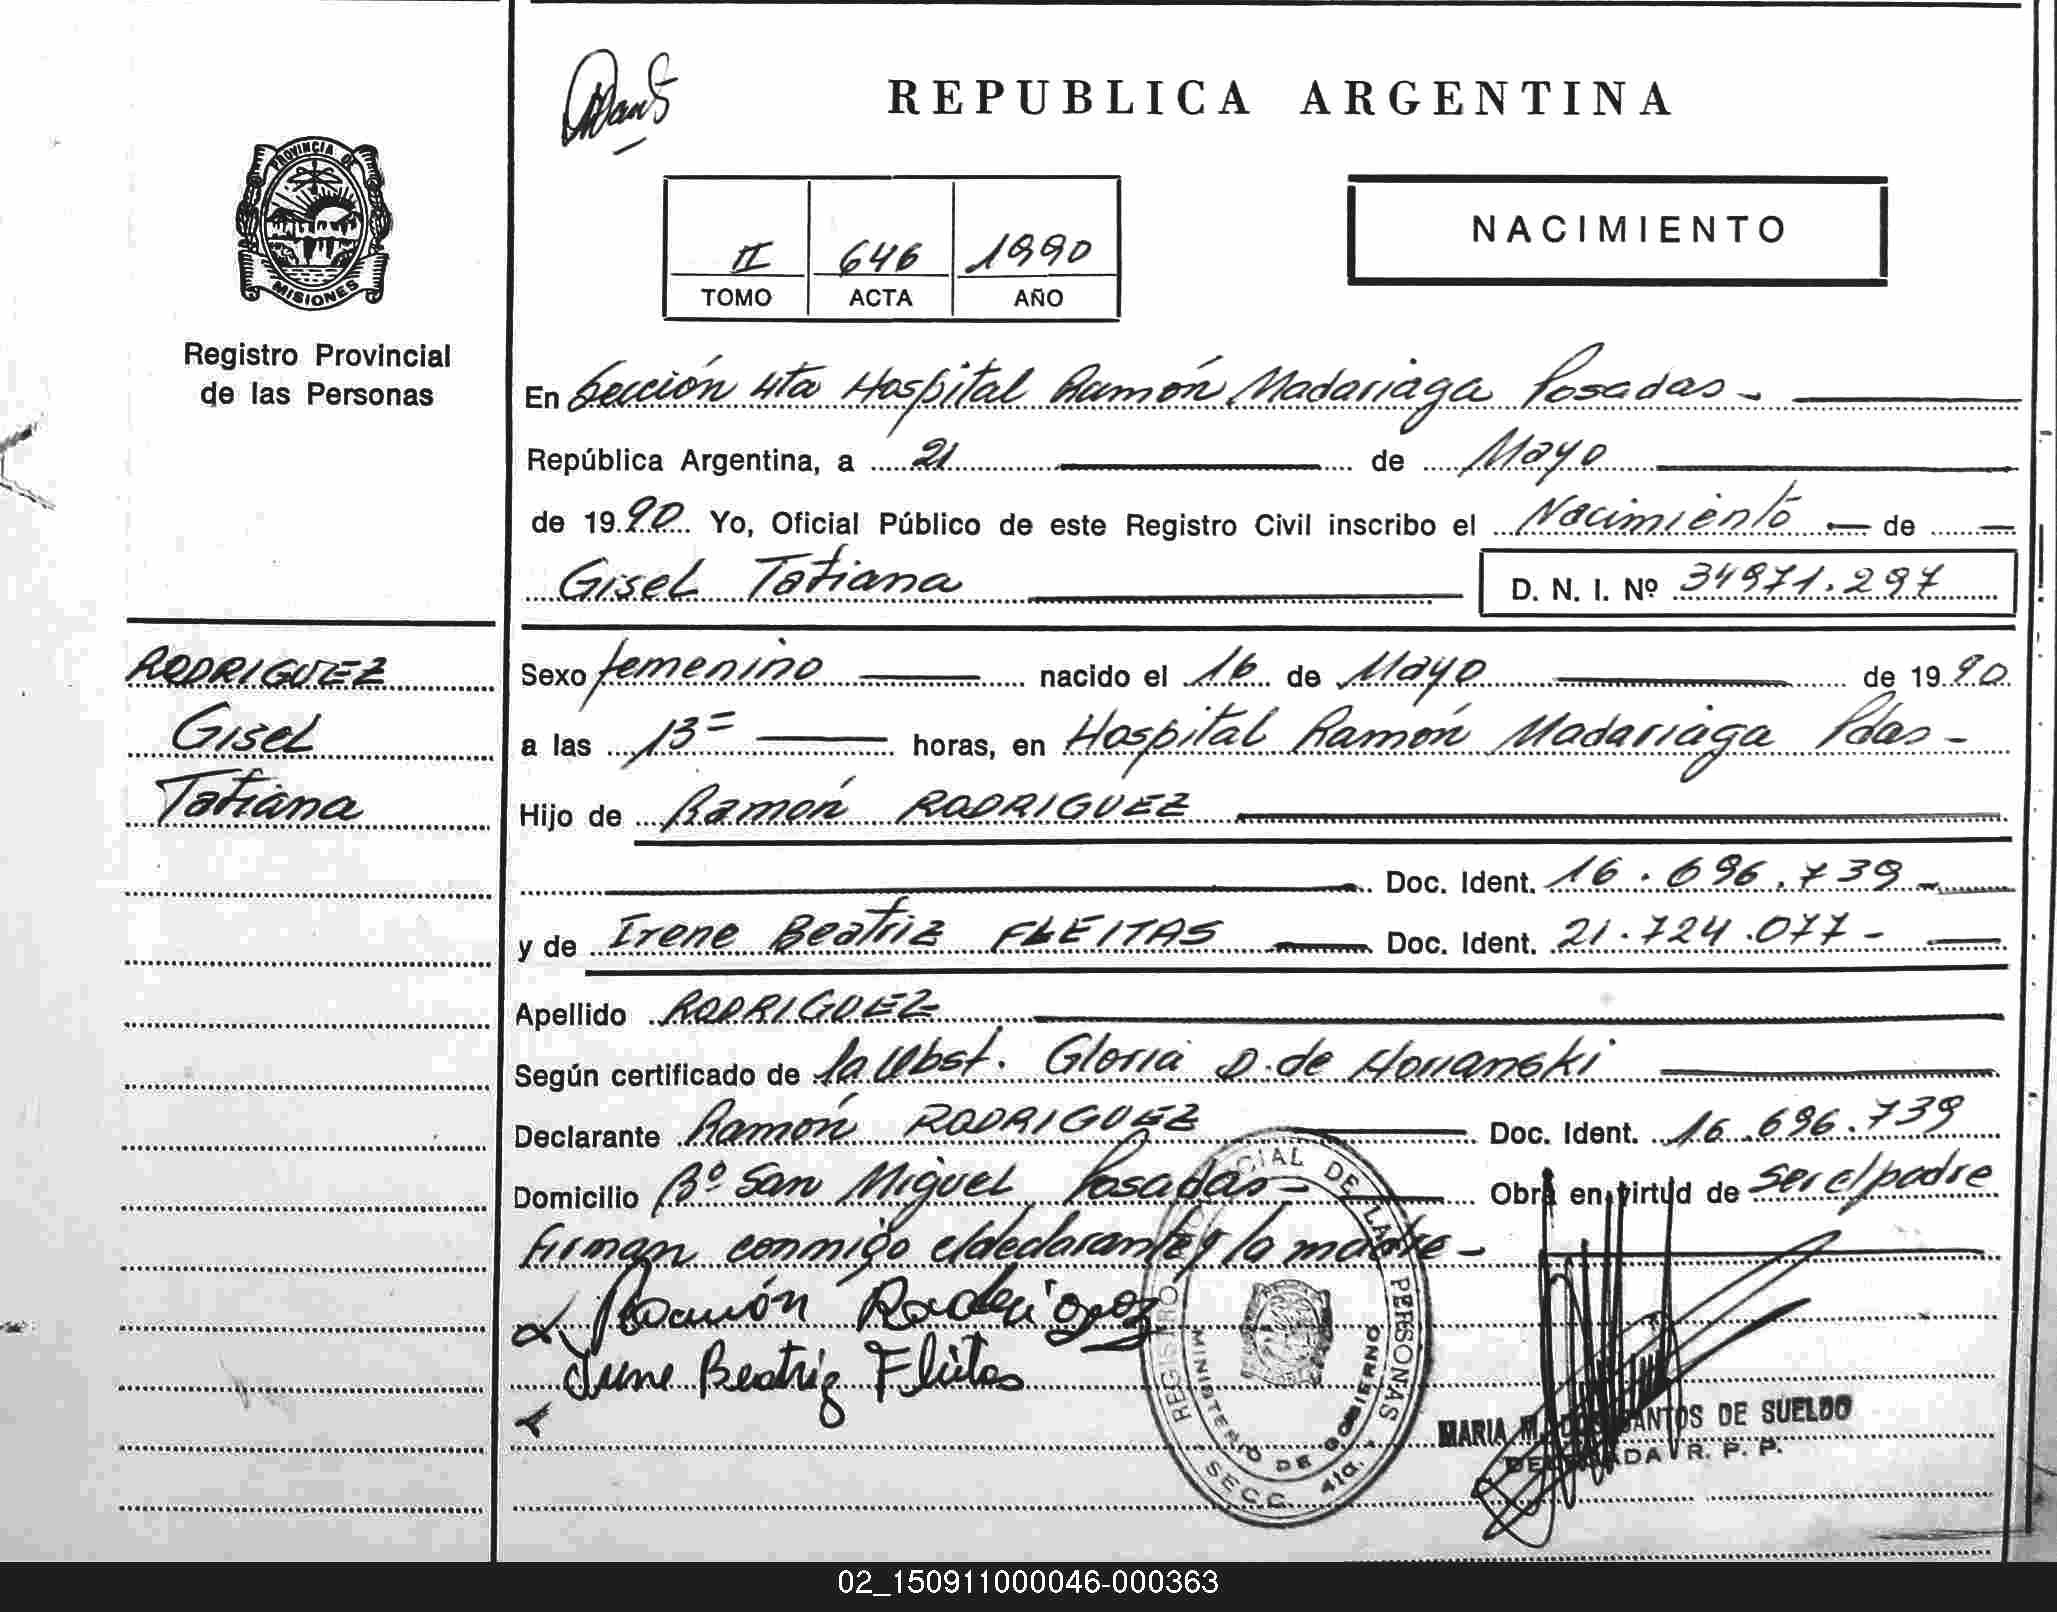 REPUBLICA ARGENTINA
PROVINCIA DE
MISIONES
Registro Provincial
de las Personas
II 646 1990
TOMO ACTA AÑO
NACIMIENTO
En Sección 4ta Hospital Ramón Madariaga Posadas -
República Argentina, a 21 de Mayo
de 1990 Yo, Oficial Público de este Registro Civil inscribo el Nacimiento de
Gisel Tatiana D. N. I. Nº 34971.297
RODRIGUEZ
Gisel
Tatiana
Sexo femenino nacido el 16 de Mayo de 1990
a las 13= horas, en Hospital Ramón Madariaga Pdas -
Hijo de Ramón RODRIGUEZ
Doc. Ident. 16.696.739
y de Irene Beatriz FLEITAS Doc. Ident. 21.724.077 -
Apellido RODRIGUEZ
Según certificado de la Obst. Gloria D. de
Declarante Ramón RODRIGUEZ Doc. Ident. 16.696.739
Domicilio Bº San Miguel Posadas - Obra en virtud de ser el padre
Firman conmigo el declarante y la madre -
Ramón Rodriguez
Irene Beatriz Fleitas
REGISTRO PROVINCIAL DE LAS PERSONAS
MINISTERIO DE GOBIERNO
SECC. 4ta.
MARIA M. DOS SANTOS DE SUELDO
DELEGADA R. P. P.
02_150911000046-000363